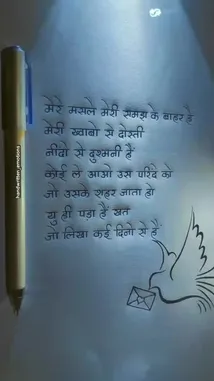 मेरे मसले मेरी समझ के बाहर है
मेरी ख्वाबो से दोस्ती
नीदो से दुश्मनी हैं
कोई ले आओ उस परिंदे को
जो उसके शहर जाता हो
यु ही पड़ा हैं खत
जो लिखा कई दिनो से हैं
handwritten_emotions